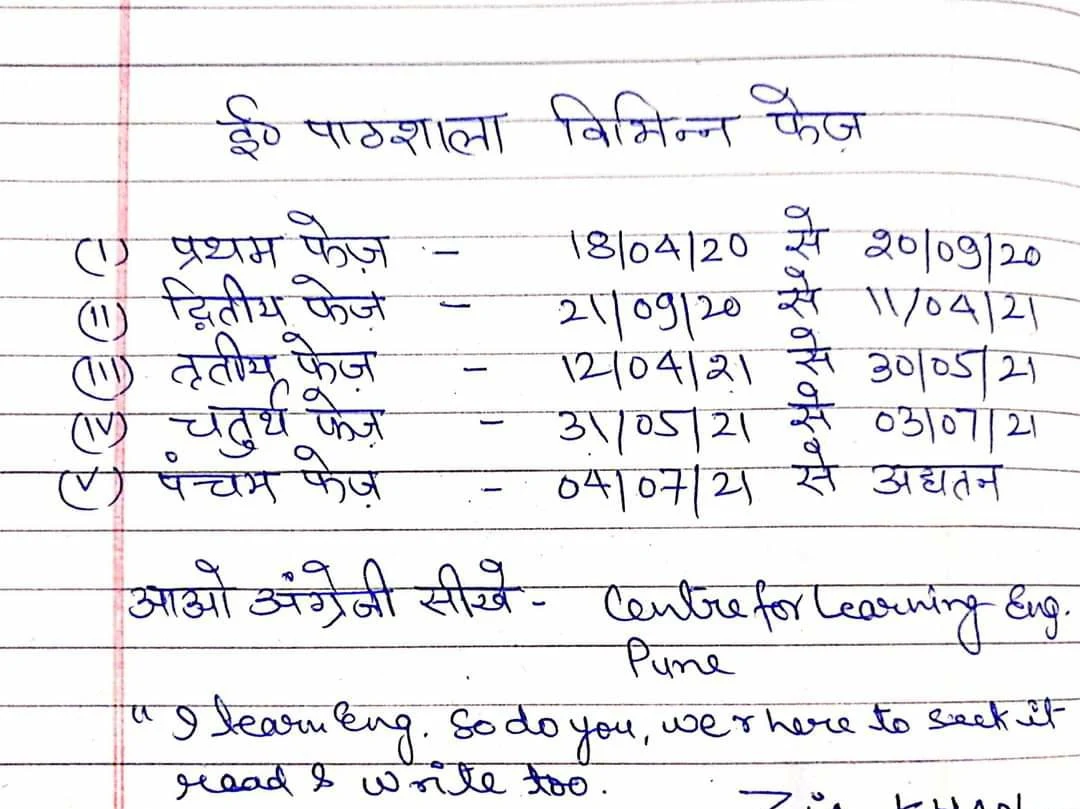 ई० पाठशाला विभिन्न फेज़
(I) प्रथम फेज़ - 18/04/20 से 20/09/20
(II) द्वितीय फेज़ - 21/09/20 से 11/04/21
(III) तृतीय फेज़ - 12/04/21 से 30/05/21
(IV) चतुर्थ फेज़ - 31/05/21 से 03/07/21
(V) पंचम फेज़ - 04/07/21 से अद्यतन
आओ अंग्रेजी सीखे - Centre for Learning Eng.
Pune
" I learn Eng. So do you, we r here to seek it
read & write too.